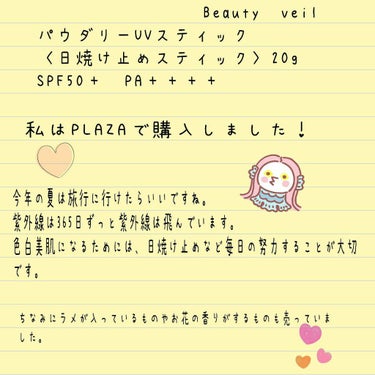 Beauty veil
パウダリーUVスティック
〈日焼け止めスティック〉20g
SPF50+ PA++++
私はPLAZAで購入しました！
今年の夏は旅行に行けたらいいですね。
紫外線は365日ずっと紫外線は飛んでいます。
色白美肌になるためには、日焼け止めなど毎日の努力することが大切
です。
ちなみにラメが入っているものやお花の香りがするものも売っていま
した。